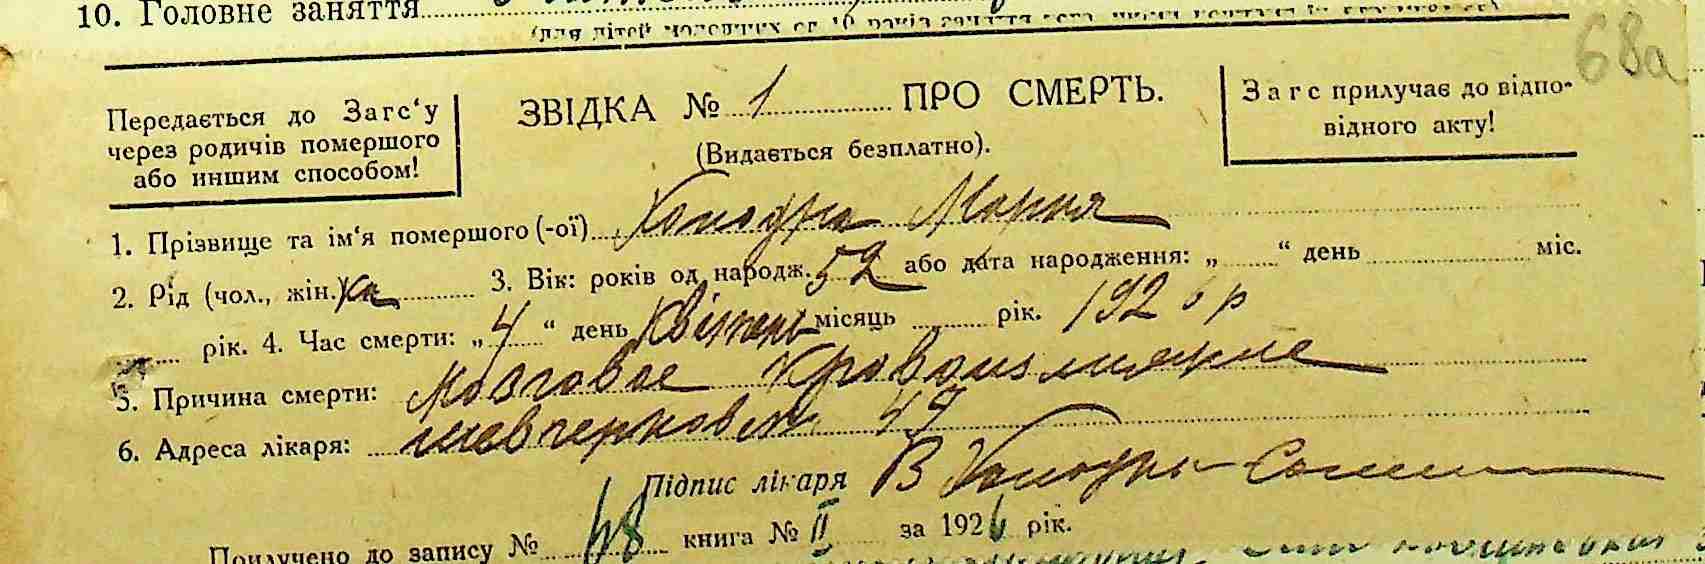 10. Головне заняття
(для дітей молодших од 10 років заняття того,
68а
Передається до Загс‘у
через родичів помершого
або иншим способом!
ЗВІДКА № 1 ПРО СМЕРТЬ.
(Видається безплатно).
Загс прилучає до відпо-
відного акту!
1. Прізвище та ім‘я помершого (-ої) Холодна Мария
2. Рід (чол., жін.) 3. Вік: років од народж. 52 або дата народження: „ “ день міс.
рік. 4. Час смерти: „4“ день Квітень місяць рік. 1926 р
5. Причина смерти: Мозговое Кровоизлияние
6. Адреса лікаря: 49
Підпис лікаря В Холодный
Прилучено до запису № 68 книга № II за 1926 рік.